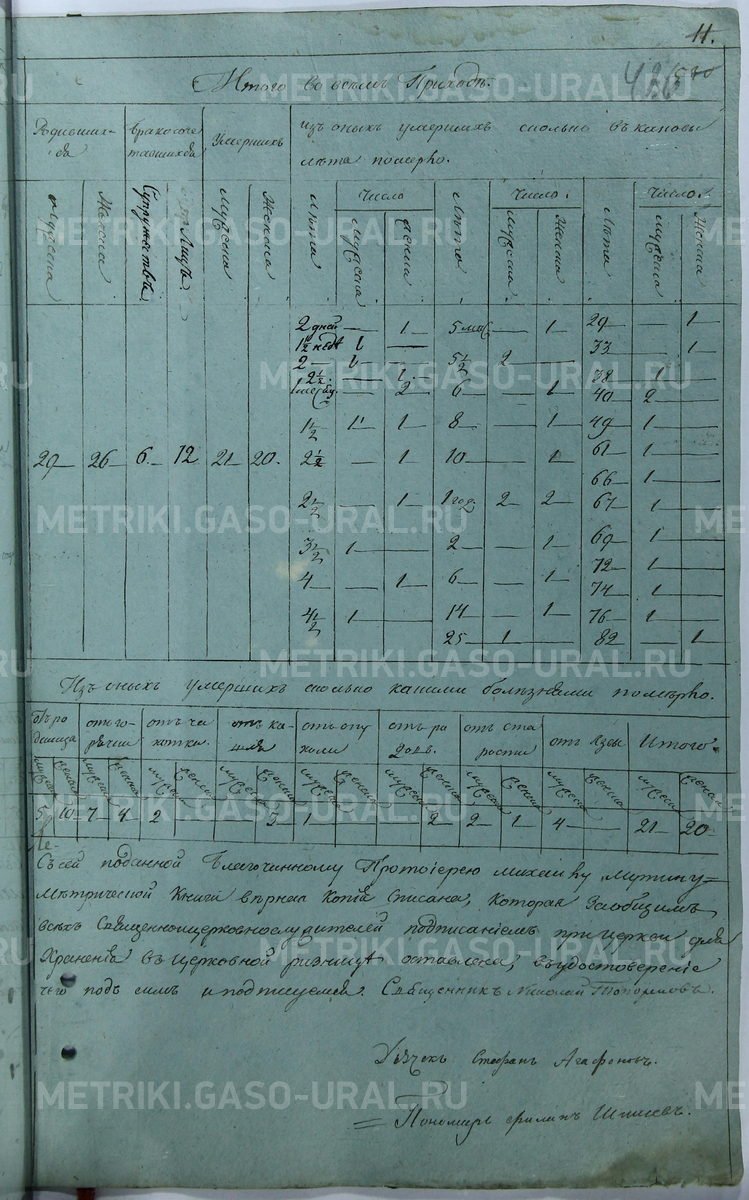 11.
Итого во всемъ Приходѣ.
Родивших- ся | Бракосоче тавшихся | Умершихъ | изъ оныхъ умершихъ сколько въ каковы
лѣта померло.
мужеска | Женска | Супружествъ | Лицъ | мужеска | Женска | лѣта | Число | лѣта | Число. | лѣта | Число.
мужеска | женска | мужеска | Женска | мужеска | Женска
2 дней — 1 | 5 мѣс — 1 | 29 — 1
1½ недѣ 1 — | 5½ 2 — | 33 — 1
2 — 1 —
2½ — 1 | 38 1 —
— 2 | 6 — 1 | 40 2 —
1½ 1 1 | 8 — 1 | 49 1 —
29 | 26 | 6. | 12 | 21 | 20. | 2½ — 1 | 10 — 1 | 61 1 —
66 1 —
2½ — 1 | 1 год. 2 2 | 67 1 —
3½ 1 — | 2 — 1 | 69 1 —
72 1 —
4 — 1 | 6 — 1 | 74 1 —
4½ 1 — | 14 — 1 | 76 1 —
25 1 — | 82 — 1
Изъ оныхъ умершихъ сколько какими болѣзнями померло.
отъ ро димца | отъ го- рячки | отъ ча хотки. | отъ ка- шля | отъ опу холи | отъ ро довъ. | отъ ста рости | отъ Язвы | Итого.
мужеска | женска | мужеска | женска | мужеска | женска | мужеска | женска | мужеска | женска | мужеска | женска | мужеска | женска | мужеска | женска
5 | 10 | 7 | 4 | 2 | 3 | 1 | 2 | 2 | 1 | 4 | — | 21 | 20
Съ сей поданной Благочинному Протоіерею Михаилу Мутину
мѣтрической Книги вѣрная Копія Списана, Которая Заобщимъ
всѣхъ Священноцерковнослужителей подписаніемъ при церкви для
Храненія въ церковной ризницѣ оставлена, въ удостовереніе
чего подъ симъ и подписуемся. Священникъ Николай Топорковъ.
Дьячекъ Стефанъ Агафоновъ.
Пономарь Филипъ Шишевъ.
METRIKI.GASO-URAL.RU